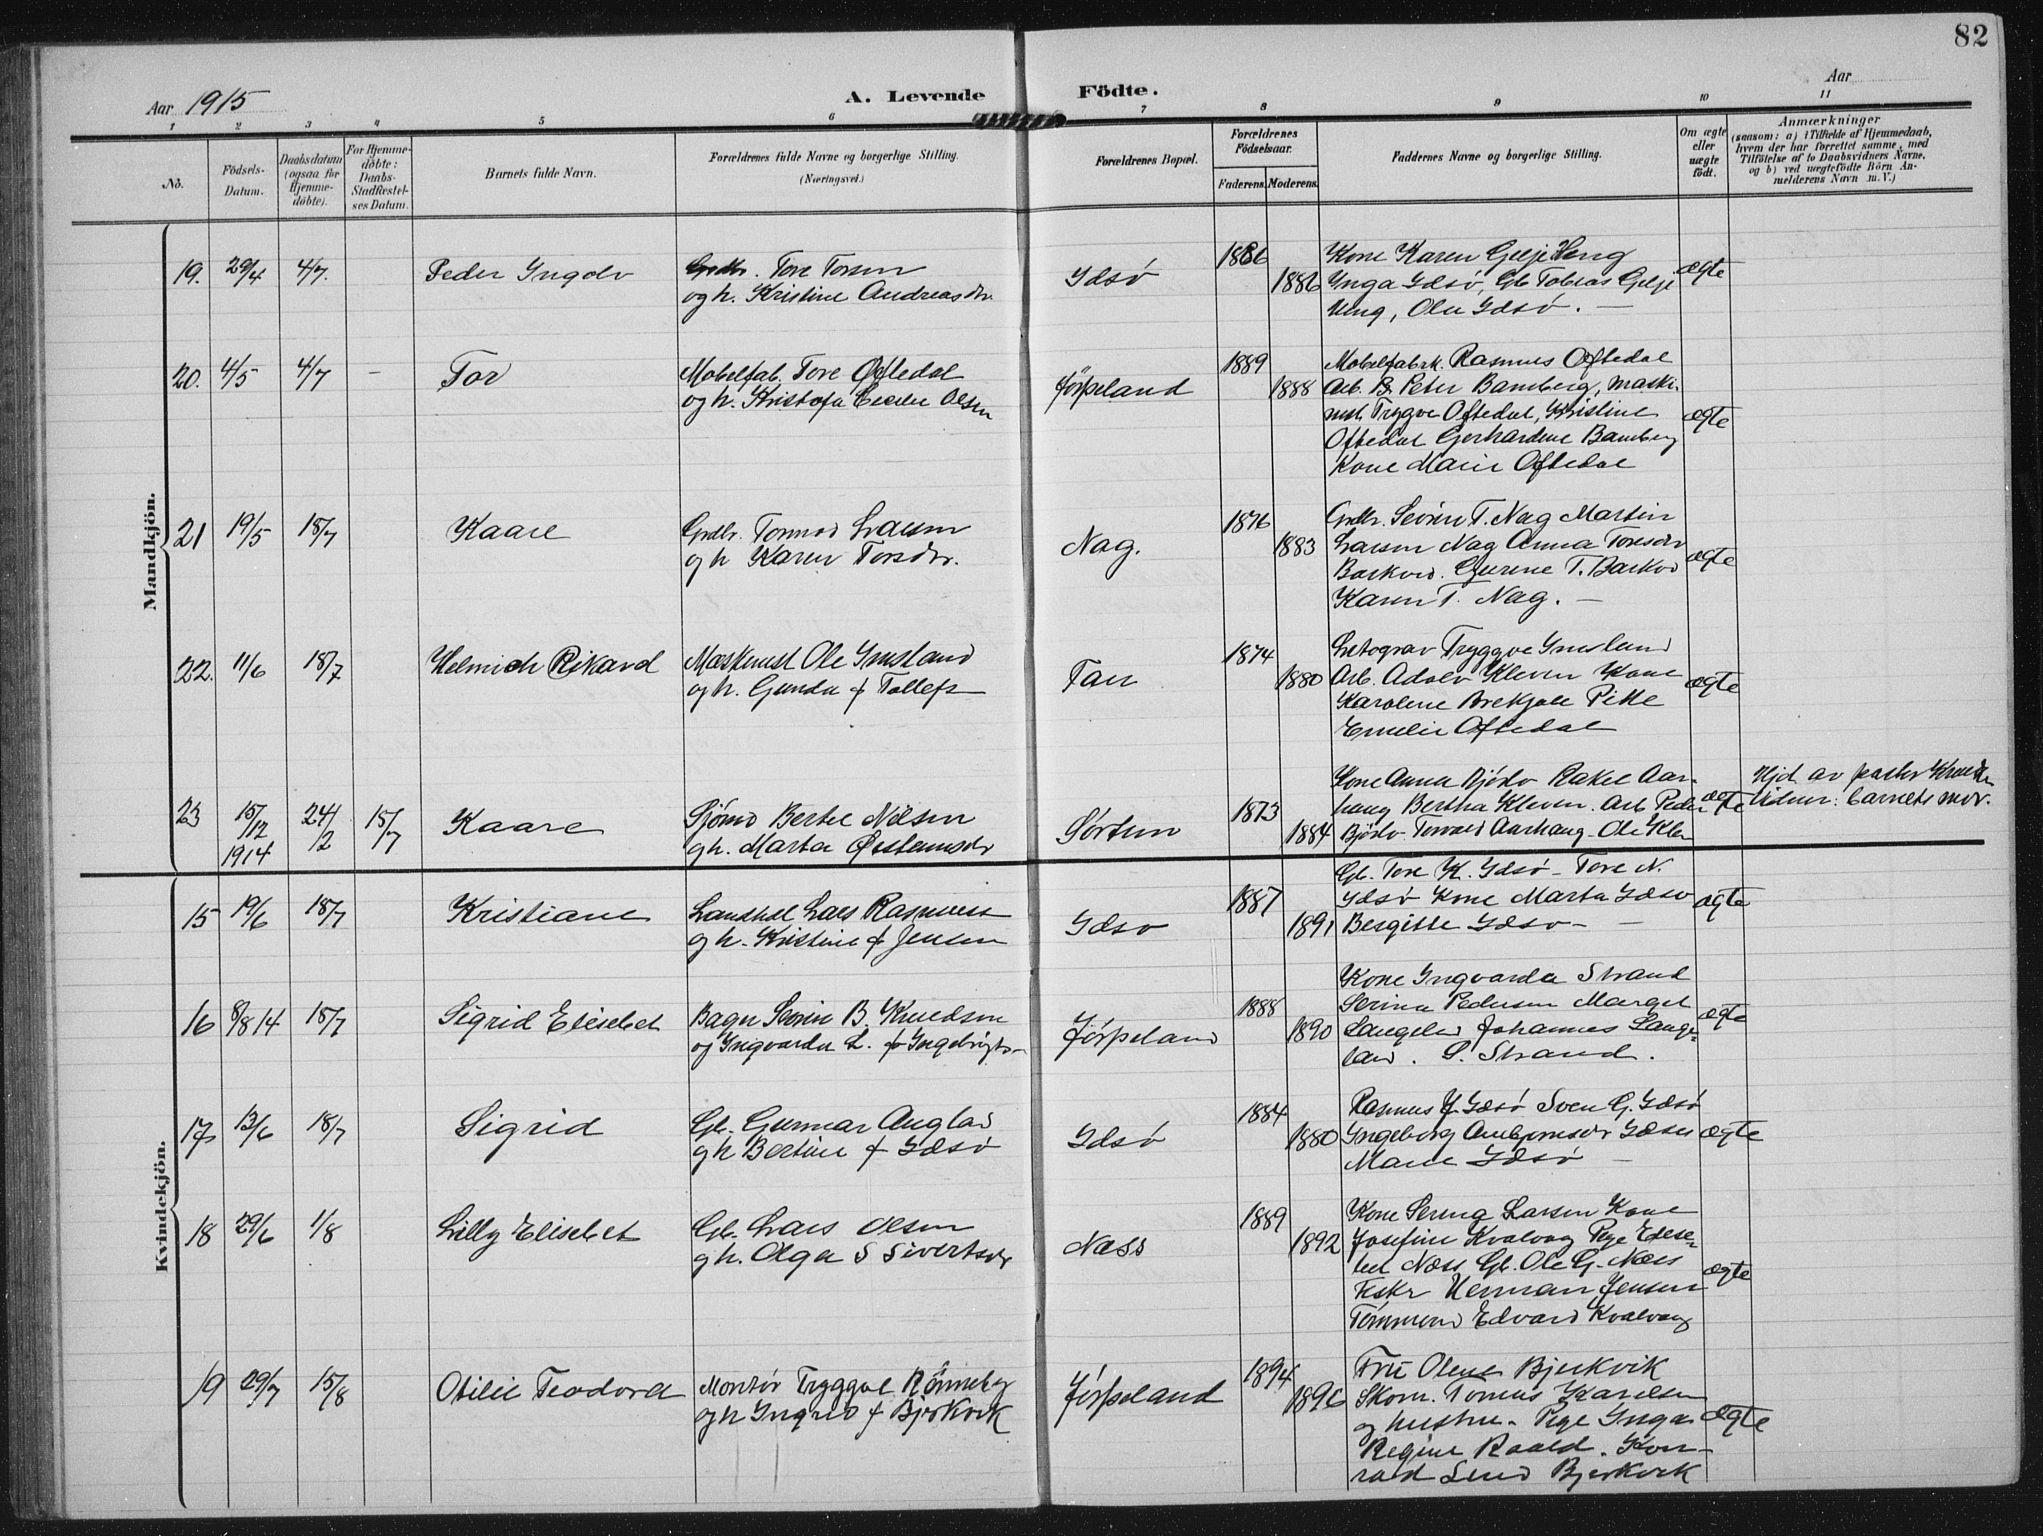 82
Aar 1915
A. Levende Födte.
Aar
1 2 3 4 5 6 7 8 9 10 11
No.
Födsels-
Datum.
Daabsdatum
(ogsaa for
Hjemme-
döbte).
For Hjemme-
döbte:
Daabs-
Stadfæstel-
ses Datum.
Barnets fulde Navn.
Forældrenes fulde Navne og borgerlige Stilling.
(Næringsvei.)
Forældrenes Bopæl.
Forældrenes
Födselsaar.
Faderens. Moderens.
Faddernes Navne og borgerlige Stilling.
Om ægte
eller
uægte
födt.
Anmærkninger
(saasom: a) i Tilfælde af Hjemmedaab,
hvem der har forrettet samme, med
Tilföielse af to Daabsvidners Navne.
og b) ved uægtefödte Börn An-
melderens Navn m. V.)
Mandkjön.
19. 29/4 4/7. Peder Ingolv
Grdbr. Tore Torsen
og h. Kristine Andreasdr.
Idsö
1886
1886
Kone Karen Gilje
Inga Idsö, Gb Tobias Gilje
Ole Idsö. —
ægte
20. 4/5 4/7 — Tor
Mobelfab. Tore Oftedal
og h. Kristofa Olsen
Jörpeland
1889
1888
Mobelfabrk. Rasmus Oftedal
Arb. B. Peter Bamberg, maski-
nist Trygve Oftedal, Kristine
Oftedal Gerhardine Bamberg
Kone Marie Oftedal
ægte
21 19/5 18/7 Kaare
Grdbr. Tormod Larsen
og h Karen Torsdr.
Nag.
1876
1883
Grdbr. Sevrin T. Nag Martin
Larsen Nag Anna Toresdr
Gurine T.
Karen T. Nag. —
ægte
22. 11/6 18/7 Helmich Rikard
Maskinist Ole Imsland
og h. Gunda f Tollefs
Tau
1874
1880
Litograv Tryggve Imsland
Arb. Adolv Kleven Kone
Karoline Brekjole Pike
Emilie Oftedal
ægte
23 15/12 1914 24/2 18/7 Kaare
Sjömd Bertel Nilsen
og h. Marta Östeinsdr
Sörtun
1873
1884
Kone Anna Bjödv Rakel Aar-
haug Bertha Kleven. Arb Peder
Bjödv Torvald Aarhaug - Ole Klev
ægte
Hjd av pastor
Vidner: barnets mor.
Kvindekjön.
15 19/6 18/7 Kristiane
Landhdl Lars Rasmusen
og h. Kristine f Jensen
Idsö
1887
1891
Gb. Tore K. Idsö - Tore N.
Idsö Kone Marta Idsö
Bergitte Idsö -
ægte
16 8/8 14 18/7 Sigrid Elisebet
Bager Sevrin B. Knudsen
og Ingvarda L. f Ingebrigts-
Jörpeland
1888
1890
Kone Ingvarda Strand
Serina Pedersen Margit
Langeland Johannes Lange-
land. S. Strand.
ægte
17 13/6 18/7 Sigrid
Gb. Gunnar
og h Bertine f Idsö
Idsö
1884
1880
Rasmus J. Idsö Sven G. Idsö
Ingeborg Idsö
Marie Idsö —
ægte
18 29/6 1/8 Lilly Elisebet
Gb. Lars Olsen
og h. Olga S Sivertsdr
Næss
1889
1892
Kone Serina Larsen Kone
Josefine Kvalvag Pige Elise-
bet Næss Gb. Ole G. Næss
Fiskr Herman Jensen
Tömmerm Edvard Kvalvaag
ægte
19 29/7 15/8 Otilie Teodora
Montör Tryggve Rönneberg
og h Ingrid f Bjerkvik
Jörpeland
1894
1896
Fru Olene Bjerkvik
Skom. Tomas Karlsen
og hustru. Pige Inga
Regine Roald. Kon-
rad Lund Bjerkvik
ægte